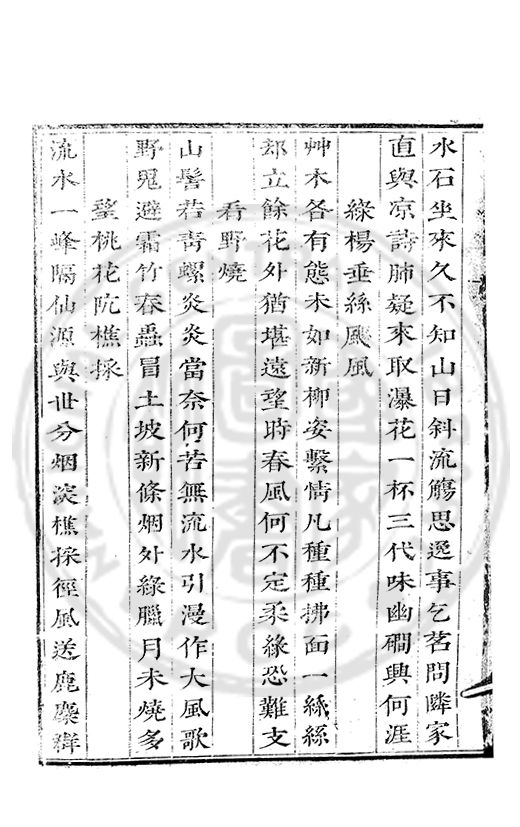 水石坐來久不知山日斜流觴思逸事乞茗問隣家
直與凉詩肺疑來取瀑花一杯三代味幽磵興何涯
綠楊垂絲颺風
艸木各有態未如新柳姿繫情凡種種拂面一絲絲
却立餘花外猶堪遠望時春風何不定柔緣恐難支
看野燒
山髻若青螺炎炎當奈何苦無流水引漫作大風歌
野鬼避霜竹春蟲冒土坡新條烟外綠臘月未燒多
望桃花阬樵採
流水一峰隔仙源與世分烟淡樵採徑風送鹿麋群